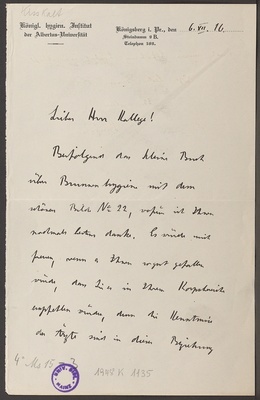 Kisskalt
Königl. hygien. Institut
der Albertus-Universität
Königsberg i. Pr., den 6. VII. 16.
Steindamm 9 B.
Telephon 585.
Lieber Herr Kollege!
Beifolgend das kleine Buch
über Brunnenhygiene mit dem
schönen Bilde No 22, wofür ich Ihnen
nochmals bestens danke. Es würde mich
freuen, wenn es Ihnen sogut gefallen
würde, dass Sie es in Ihrem Korpsbereich
empfehlen würden, denn die Kenntnisse
der Ärzte sind in dieser Beziehung
UNIV. BIBL.
1948 K. 1935